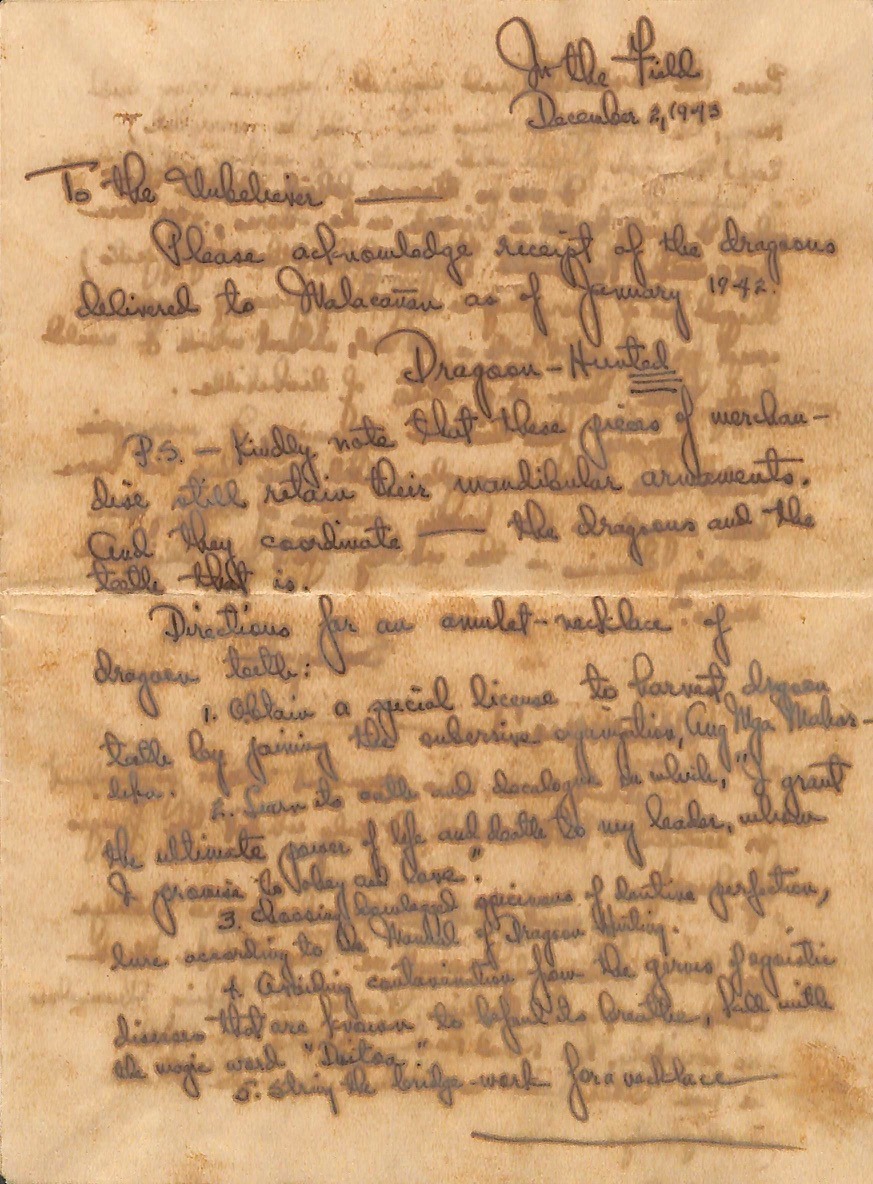 In the Field
December 2, 1943
To the Unbeliever —
Please acknowledge receipt of the dragoons
delivered to Malacañan as of January 1942.
Dragoon-Hunted
P.S. — Kindly note that these pieces of merchan-
dise still retain their mandibular armaments.
And they coordinate — the dragoons and the
teeth that is.
Directions for an amulet-necklace of
dragoon teeth:
1. Obtain a special license to harvest dragoon
teeth by joining the subersive organization, Ang Mga Mahar-
lika.
2. Learn its oath and decalogue in which, "I grant
the ultimate power of life and death to my leader, whom
I promise to obey and love".
3. Choosing specimens of dentine perfection,
lure according to the Manual of Dragoon Hunting.
4. Avoiding contamination from the germs of egoistic
diseases that are known to its breather, kill with
the magic word
5. String the bridge-work for a necklace —